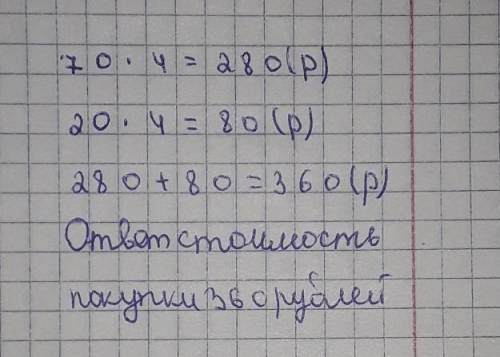 70 · 4 = 280(р)
20 · 4 = 80(р)
280 + 80 = 360(р)
Ответ стоимость
покупки 360 рублей